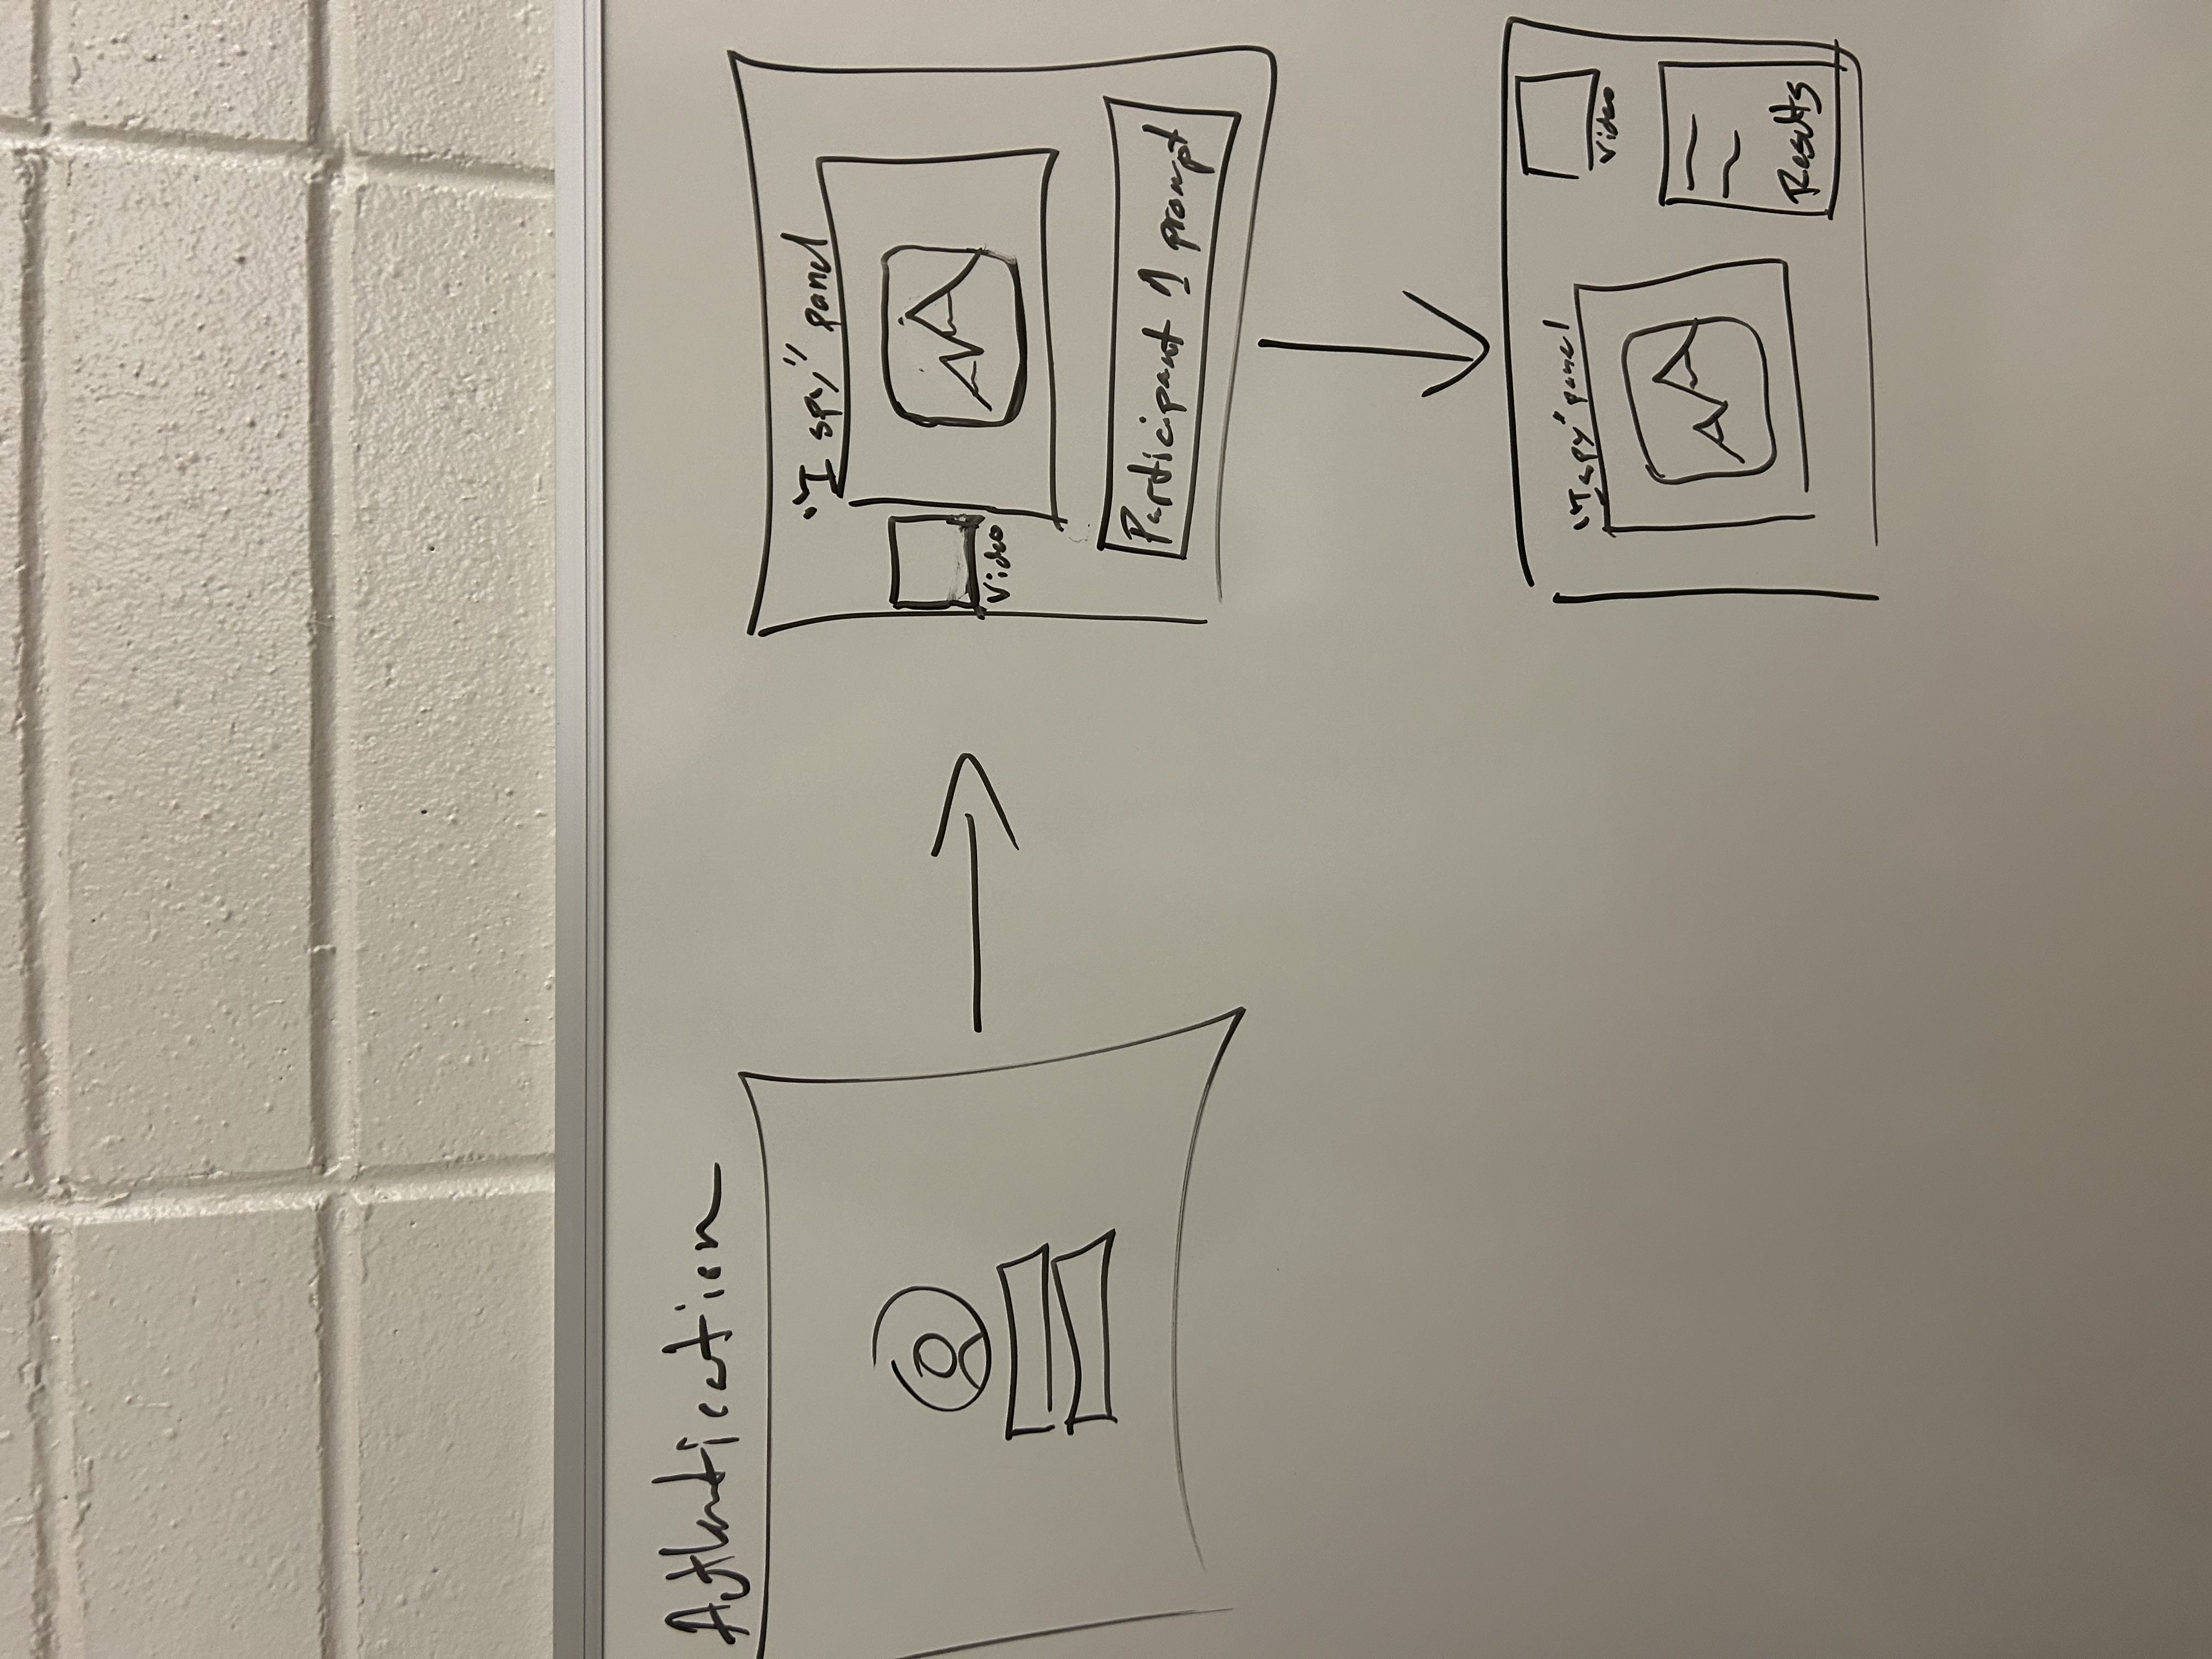 Authentication
"I spy" panel
Video
Participant 1 prompt
"I spy" panel
Video
Results